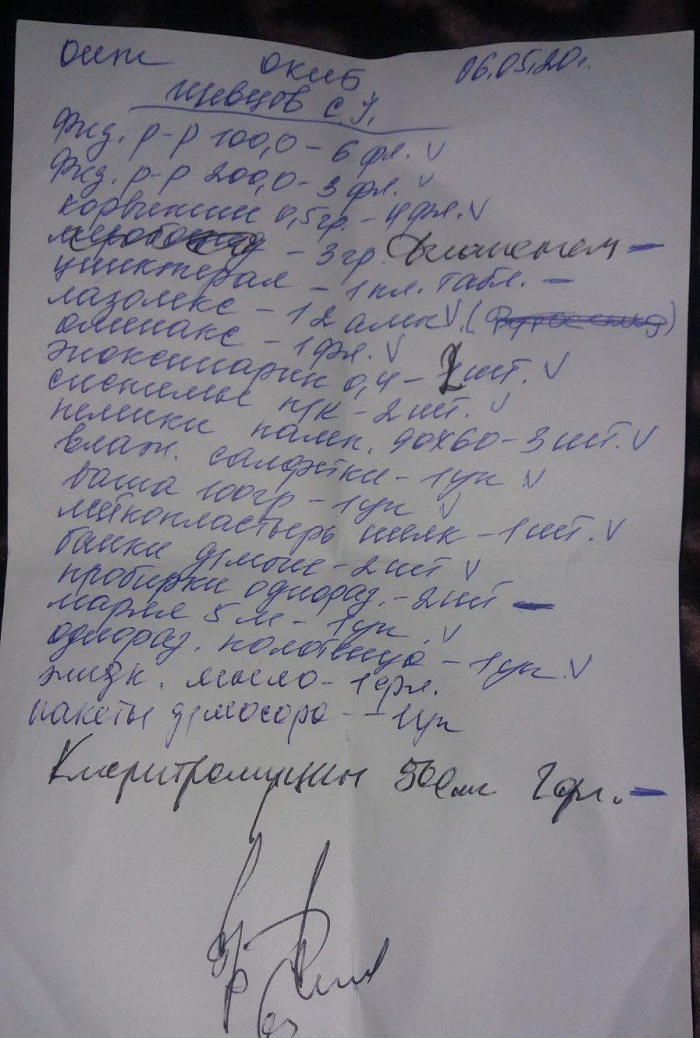 ОИТ ОКИБ 06.05.20г.
Шевцов С.У.
Физ. р-р 100,0 – 6 фл. V
Физ. р-р 200,0 – 3 фл. V
корвикит 0,5гр. – 4фл. V
– 3гр. –
цинктерал – 1 пл. табл. –
лазолекс – 12 амп V. ( )
оменакс – 1фл. V
эноксипарин 0,4 – шт. V
системы п/к – 2 шт. V
пеленки памп. 90х60 – 3 шт. V
влаж. салфетки – 1уп V
вата 100гр – 1уп V
лейкопластырь шелк – 1шт. V
банки д/мочи – 2шт V
пробирки однораз. – 2шт –
марля 5 м – 1уп V
однораз. полотенца – 1уп. V
жидк. мыло – 1фл.
пакеты д/мусора – 1уп
Кларитромицин 500мг 2фл. –